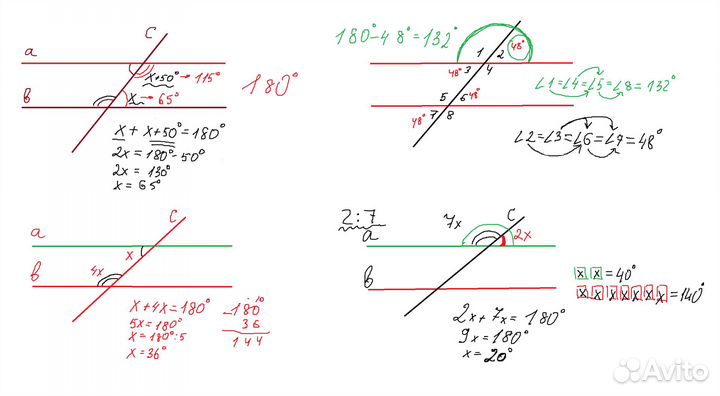 C
a
x+50° → 115°
180°
b
x → 65°
x + x+50° = 180°
2x = 180° - 50°
2x = 130°
x = 65°
180° - 48° = 132°
1 2 48°
48° 3 4
5 6 48°
48° 7 8
∠1=∠4=∠5=∠8=132°
∠2=∠3=∠6=∠7=48°
C
a
x
b
4x
x+4x=180°
5x=180°
x=180°:5
x=36°
180
36
144
2:7
7x
C
a
2x
b
2x+7x=180°
9x=180°
x=20°
x x =40°
x x x x x x x =140°
Avito